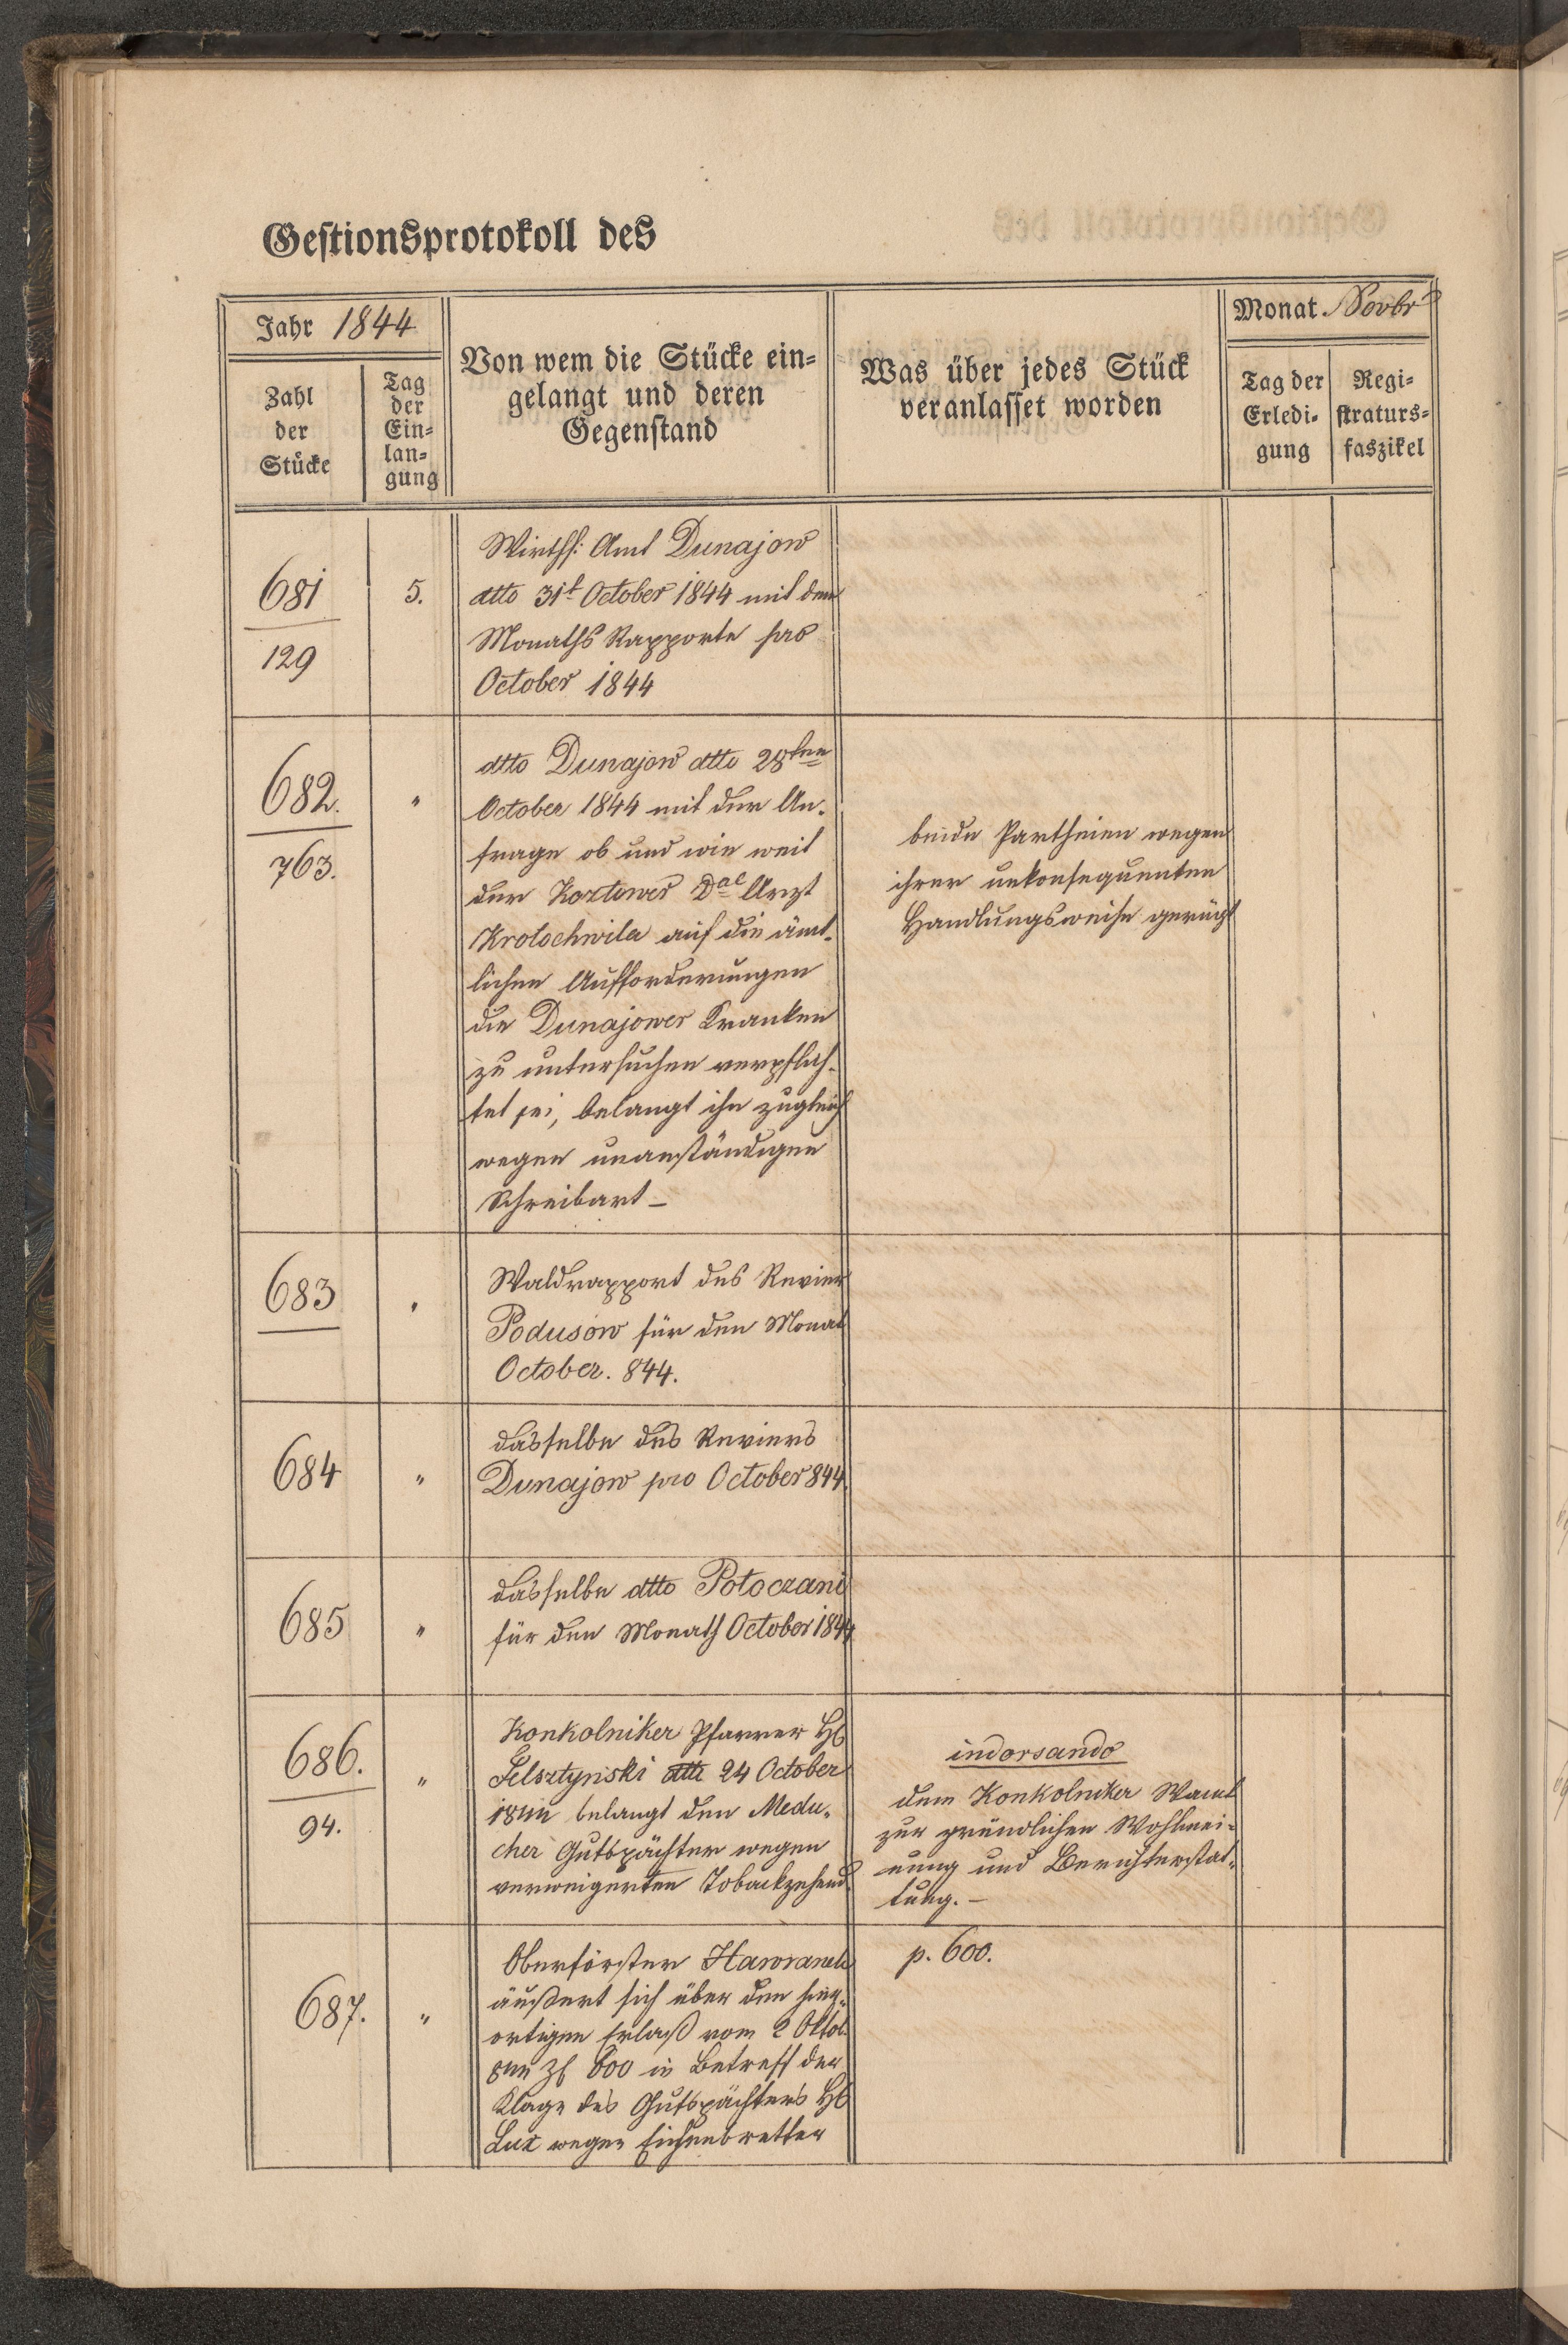 Gestionsprotokoll des
Jahr 1844
Monat Novbr
Zahl
der
Stücke
Tag
der
Ein-
lan-
gung
Von wem die Stücke ein-
gelangt und deren
Gegenstand
Was über jedes Stück
veranlasset worden
Tag der
Erledi-
gung
Regi-
straturs-
faszikel
681
129
5.
Wirths: Amt Dunajow
dtto 31t October 1844 mit dem
Monaths Rapporte pro
October 1844
682.
763.
"
dtto Dunajow dtto 28ten
October 1844 mit der An-
frage ob und wie weit
der Kozlower Dal Arzt
Krotochwila auf die ämt-
lichen Aufforderungen
die Dunajower Kranken
zu untersuchen verpflich-
tet sei, belangt ihn zugleich
wegen unanständigen
Schreibart –
beide Partheien wegen
ihrer unkonsequenten
Handlungsweise gerügt
683
"
Waldrapport des Revier
Podusow für den Monat
October. 844.
684
"
dasselbe des Reviers
Dunajow pro October 844.
685
"
dasselbe dtto Potoczani
für den Monath October 1844
686.
94.
"
Konkolniker Pfarrer H
Felsztynski dtto 24 October
1844 belangt den Medu-
cher Gutspächter wegen
verweigerten Tobackzehend.
indorsando
dem Konkolniker Wamt
zur gründlichen Wohlmei-
nung und Berichterstat-
tung. –
687.
"
Oberförster Hawranek
äußert sich über den hier-
ortigen Erlaß vom 2 Oktob.
844 Zl 600 in Betreff der
Klage des Gutspächters H
Lux wegen Eichenbretter
p. 600.